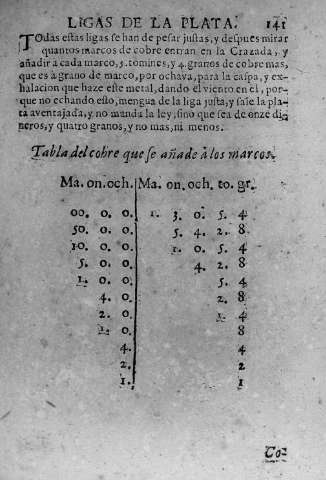 LIGAS DE LA PLATA. 141
TOdas estas ligas se han de pesar justas, y despues mirar
quantos marcos de cobre entran en la Crazada, y
añadir a cada marco, 3. tomines, y 4. granos de cobre mas,
que es à grano de marco, por ochava, para la caspa, y ex-
halacion que haze este metal, dando el viento en el, por-
que no echando esto, mengua de la liga justa, y sale la pla
ta aventajada, y no manda la ley, sino que sea de onze di-
neros, y quatro granos, y no mas, ni menos.
Tabla del cobre que se añade à los marcos.
Ma. on. och. Ma. on. och. to. gr.
00. 0. 0. 1. 3. 0. 5. 4
50. 0. 0. 5. 4. 2. 8
10. 0. 0. 1. 0. 5. 4
5. 0. 0. 4. 2. 8
1. 0. 0. 5. 4
4. 0. 2. 8
2. 0. 1. 4
1. 0. 8
4. 4
2. 2
1. 1
Co-